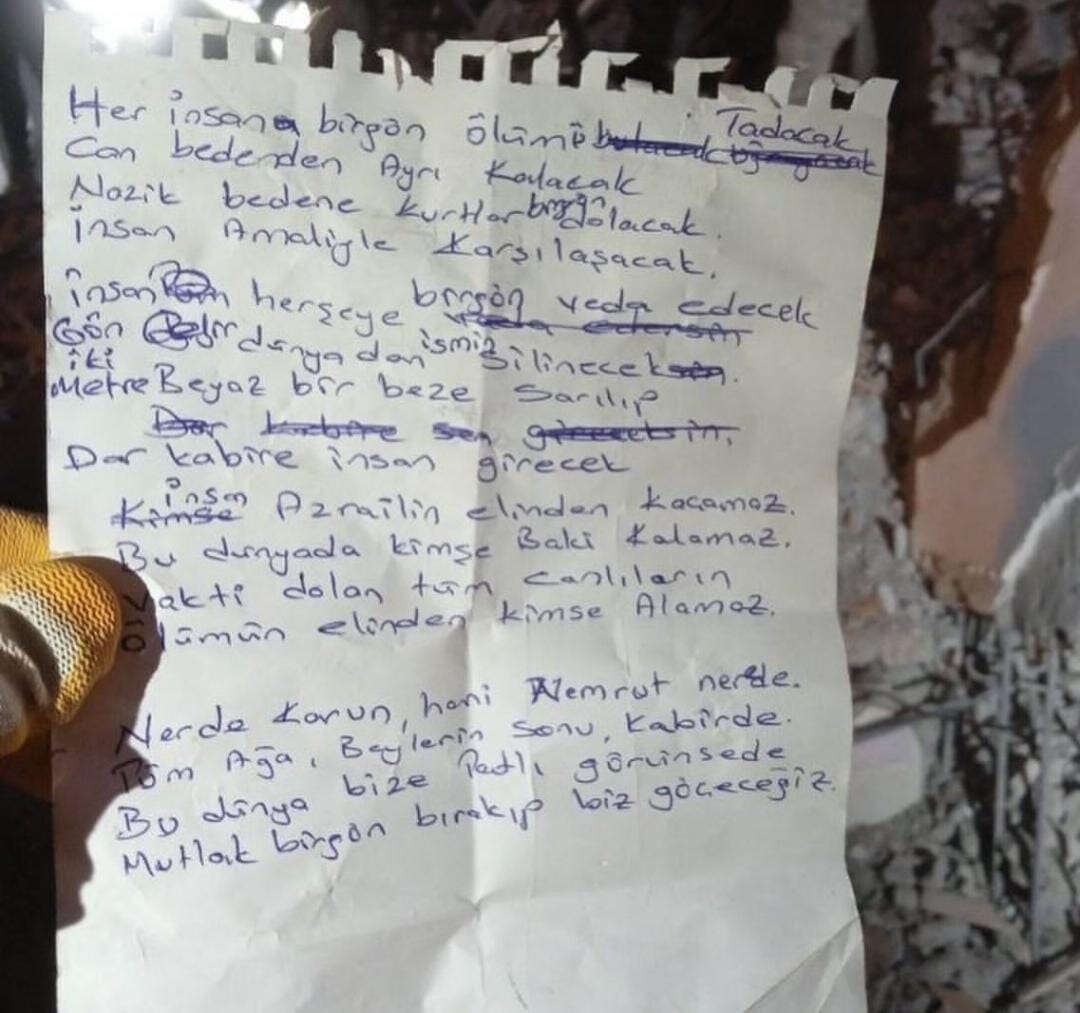 Her insana birgün ölümü Tadacak
Can bedenden Ayrı Kalacak
Nazik bedene kurtlar birgün dolacak.
İnsan Amaliyle Karşılaşacak.
İnsan herşeye birgün veda edecek
Gün Gelir dünyadan ismin Silinecek.
iki Metre Beyaz bir beze Sarılıp
Dar kabire sen gireceksin.
Dar kabire insan girecek
İnsan Azrailin elinden Kaçamaz.
Bu dünyada kimse Baki Kalamaz.
Vakti dolan tüm canlıların
ölümün elinden kimse Alamaz.
Nerde Karun, hani Nemrut nerde.
Tüm Ağa, Beylerin Sonu, Kabirde.
Bu dünya bize Tatlı görünsede
Mutlak birgün bırakıp biz göçeceğiz.